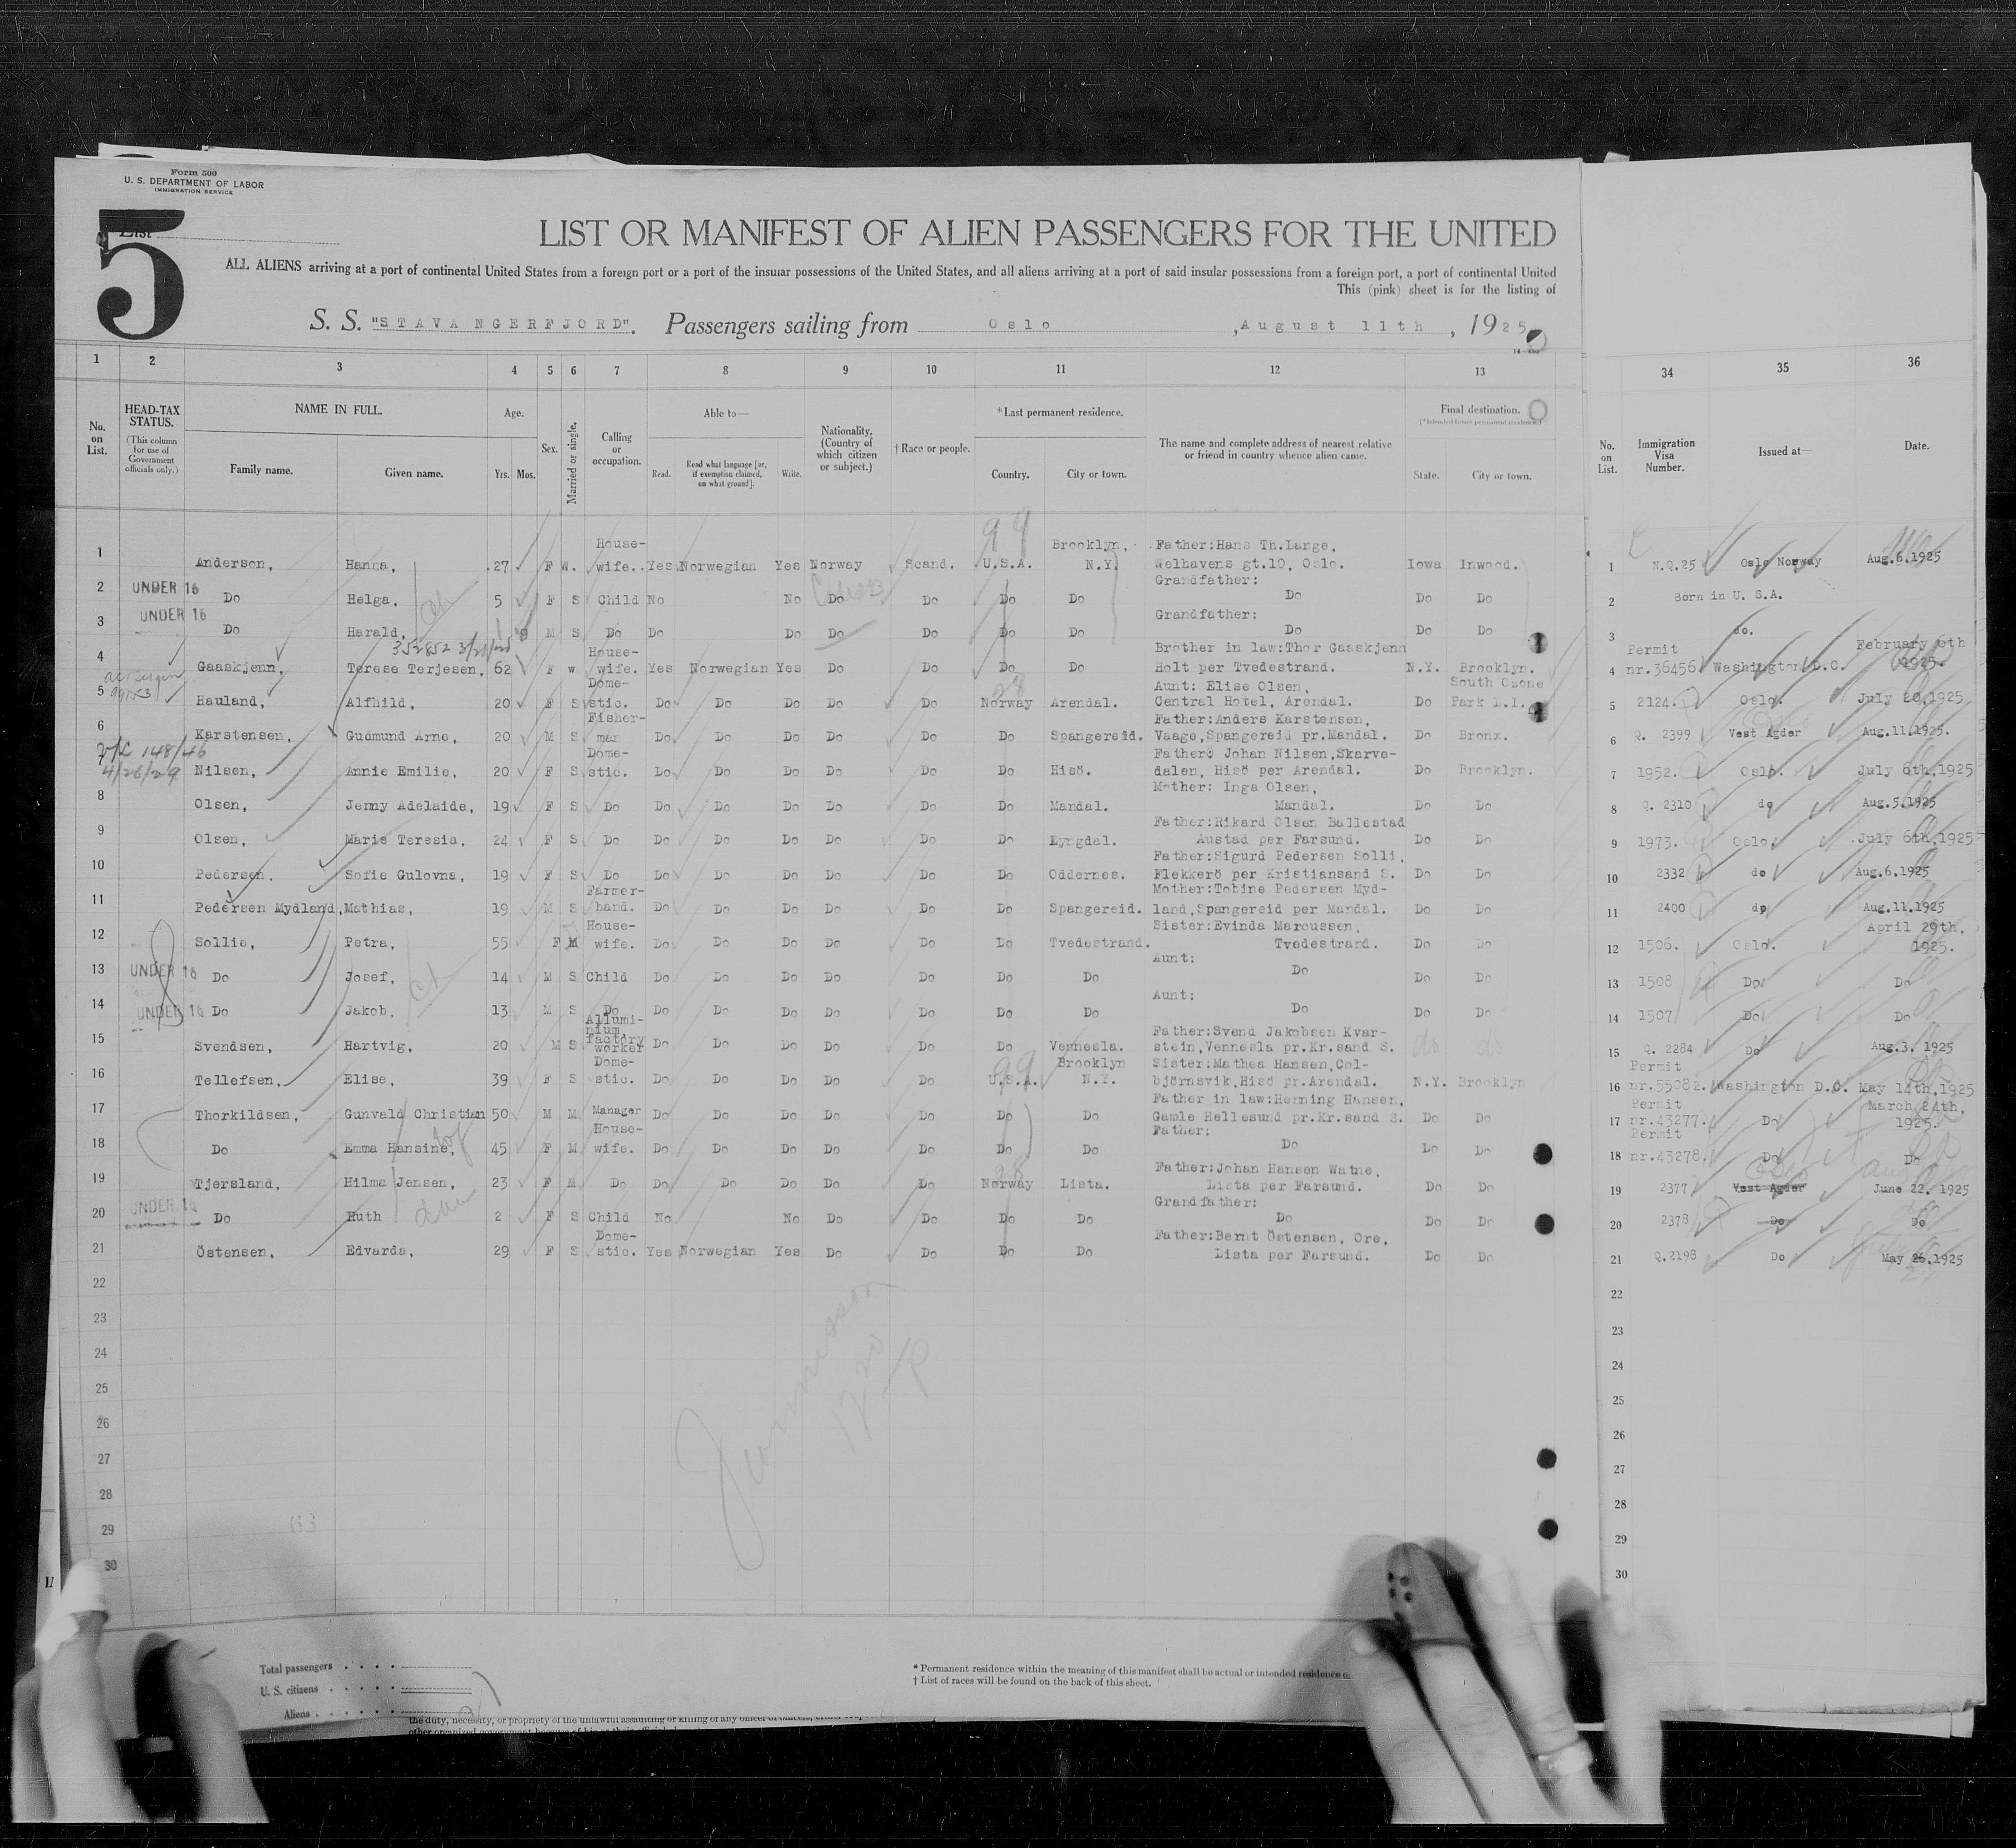 Form 500
U. S. DEPARTMENT OF LABOR
IMMIGRATION SERVICE
5
List
LIST OR MANIFEST OF ALIEN PASSENGERS FOR THE UNITED
ALL ALIENS arriving at a port of continental United States from a foreign port or a port of the insular possessions of the United States, and all aliens arriving at a port of said insular possessions from a foreign port, a port of continental United
This (pink) sheet is for the listing of
S. S. "STAVANGERFJORD". Passengers sailing from Oslo, August 11th, 1925
1 2 3 4 5 6 7 8 9 10 11 12 13 34 35 36
No. on List.
HEAD-TAX STATUS.
(This column for use of Government officials only.)
NAME IN FULL.
Family name. Given name.
Age.
Yrs. Mos.
Sex.
Married or single.
Calling or occupation.
Able to—
Read. Read what language [or, if exemption claimed, on what ground]. Write.
Nationality. (Country of which citizen or subject.)
† Race or people.
* Last permanent residence.
Country. City or town.
The name and complete address of nearest relative or friend in country whence alien came.
Final destination.
(* Intended future permanent residence.)
State. City or town.
No. on List.
Immigration Visa Number.
Issued at—
Date.
1 Anderson, Hanna, 27 F W. House-wife. Yes Norwegian Yes Norway Scand. U.S.A. Brooklyn, N.Y. Father:Hans Th.Lange, Welhavens gt.10, Oslo. Iowa Inwood. 1 N.Q.25 Oslo Norway Aug.6.1925
2 UNDER 16 Do Helga, 5 F S Child No No Do Do Do Do Grandfather: Do Do Do 2 Born in U. S.A.
3 UNDER 16 Do Harald, 9 M S Do Do Do Do Do Do Do Grandfather: Do Do Do 3 do.
4 Gaaskjenn, Terese Terjesen, 62 F w House-wife. Yes Norwegian Yes Do Do Do Do Brother in law:Thor Gaaskjenn Holt per Tvedestrand. N.Y. Brooklyn. 4 Permit nr.36456 Washington D.C. February 6th 1925.
5 Hauland, Alfhild, 20 F S Dome-stic. Do Do Do Do Do Norway Arendal. Aunt: Elise Olsen, Central Hotel, Arendal. Do South Ozone Park L.I. 5 2124. Oslo. July 20,1925
6 Karstensen, Gudmund Arne, 20 M S Fisher-man Do Do Do Do Do Do Spangereid. Father:Anders Karstensen, Vaage,Spangereid pr.Mandal. Do Bronx. 6 Q. 2399 Vest Agder Aug.11.1925.
V/L 148/46
4/26/29
7 Nilsen, Annie Emilie, 20 F S Dome-stic. Do Do Do Do Do Do Hisö. Father: Johan Nilsen,Skarve-dalen, Hisö per Arendal. Do Brooklyn. 7 1952. Oslo. July 6th,1925
8 Olsen, Jenny Adelaide, 19 F S Do Do Do Do Do Do Do Mandal. Mother: Inga Olsen, Mandal. Do Do 8 Q. 2310 do Aug.5.1925
9 Olsen, Marie Teresia, 24 F S Do Do Do Do Do Do Do Lyngdal. Father:Rikard Olsen Ballestad Austad per Farsund. Do Do 9 1973. Oslo. July 6th,1925
10 Pedersen, Sofie Gulovna, 19 F S Do Do Do Do Do Do Do Oddernes. Father:Sigurd Pedersen Solli, Flekkerö per Kristiansand S. Do Do 10 2332 do Aug.6.1925
11 Pedersen Mydland, Mathias, 19 M S Farmer-hand. Do Do Do Do Do Do Spangereid. Mother:Tobine Pedersen Myd-land,Spangereid per Mandal. Do Do 11 2400 do Aug.11.1925
12 Sollie, Petra, 55 F M House-wife. Do Do Do Do Do Do Tvedestrand. Sister:Evinda Marcussen, Tvedestrand. Do Do 12 1506. Oslo. April 29th, 1925.
13 UNDER 16 Do Josef, 14 M S Child Do Do Do Do Do Do Do Aunt: Do Do Do 13 1508 Do Do
14 UNDER 16 Do Jakob, 13 M S Do Do Do Do Do Do Do Do Aunt: Do Do Do 14 1507 Do Do
15 Svendsen, Hartvig, 20 M S Allumi-nium, factory worker Do Do Do Do Do Do Vennesla. Father:Svend Jakobsen Kvar-stein,Vennesla pr.Kr.sand S. do do 15 Q. 2284 Do Aug.3. 1925
16 Tellefsen, Elise, 39 F S Dome-stic. Do Do Do Do Do U.S.A. Brooklyn N.Y. Sister:Mathea Hansen,Col-björnsvik,Hisö pr.Arendal. N.Y. Brooklyn 16 Permit nr.55082. Washington D.C. May 14th,1925
17 Thorkildsen, Gunvald Christian 50 M M Manager Do Do Do Do Do Do Do Father in law:Henning Hansen, Gamle Hellesund pr.Kr.sand S. Do Do 17 Permit nr.43277. Do March 24th, 1925.
18 Do Emma Hansine, 45 F M House-wife. Do Do Do Do Do Do Do Father: Do Do Do 18 Permit nr.43278. Do Do
19 Tjersland, Hilma Jensen, 23 F M Do Do Do Do Do Do Norway Lista. Father:Johan Hansen Watne, Lista per Farsund. Do Do 19 2377 Vest Agder Oslo June 22. 1925
20 UNDER 16 Do Ruth 2 F S Child No No Do Do Do Do Grandfather: Do Do Do 20 2378 Do Do
21 Östensen, Edvarda, 29 F S Dome-stic. Yes Norwegian Yes Do Do Do Do Father:Bernt Östensen, Ore, Lista per Farsund. Do Do 21 Q.2198 Do May 26.1925
22 22
23 23
24 24
25 25
26 26
27 27
28 28
29 29
30 30
Total passengers
U. S. citizens
Aliens
* Permanent residence within the meaning of this manifest shall be actual or intended residence
† List of races will be found on the back of this sheet.
the duty, necessity, or propriety of the unlawful assaulting or killing of any officer or officers,